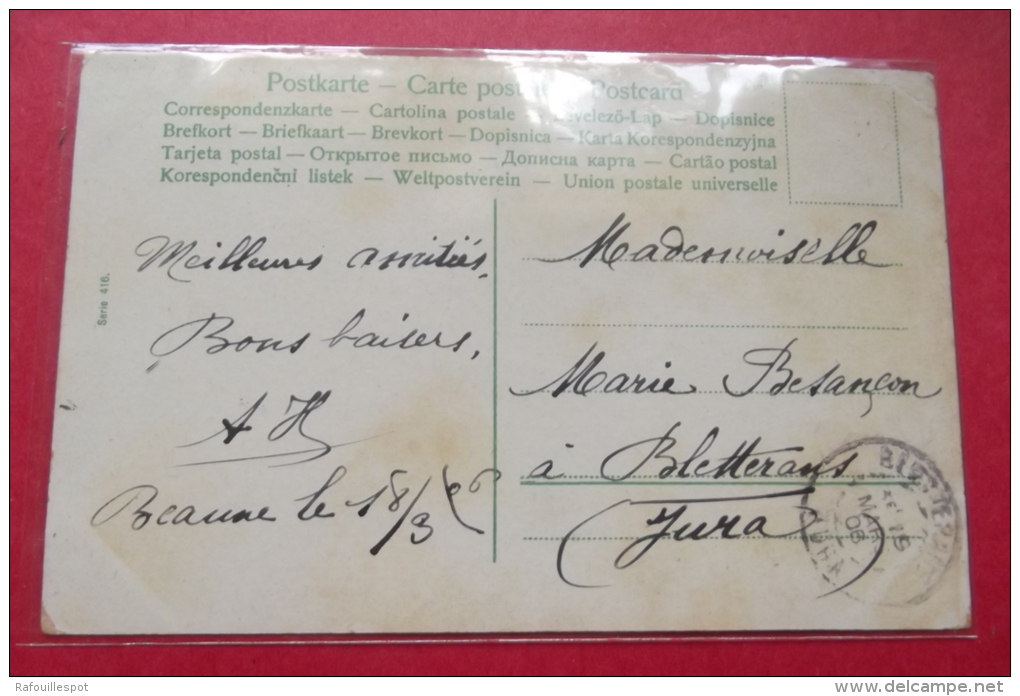 Postkarte – Carte Postcard
Correspondenzkarte – Cartolina postale – Levelező-Lap – Dopisnice
Brefkort – Briefkaart – Brevkort – Dopisnica – Karta Korespondenzyjna
Tarjeta postal – Открытое письмо – Дописна карта – Cartão postal
Korespondenční listek – Weltpostverein – Union postale universelle
Serie 416.
Meilleures amitiés,
Bons baisers,
A H
Beaune le 18/3/06
Mademoiselle
Marie Besançon
à Bletterans
(Jura)
MAR
06
JURA
Rafouillespot
www.delcampe.net